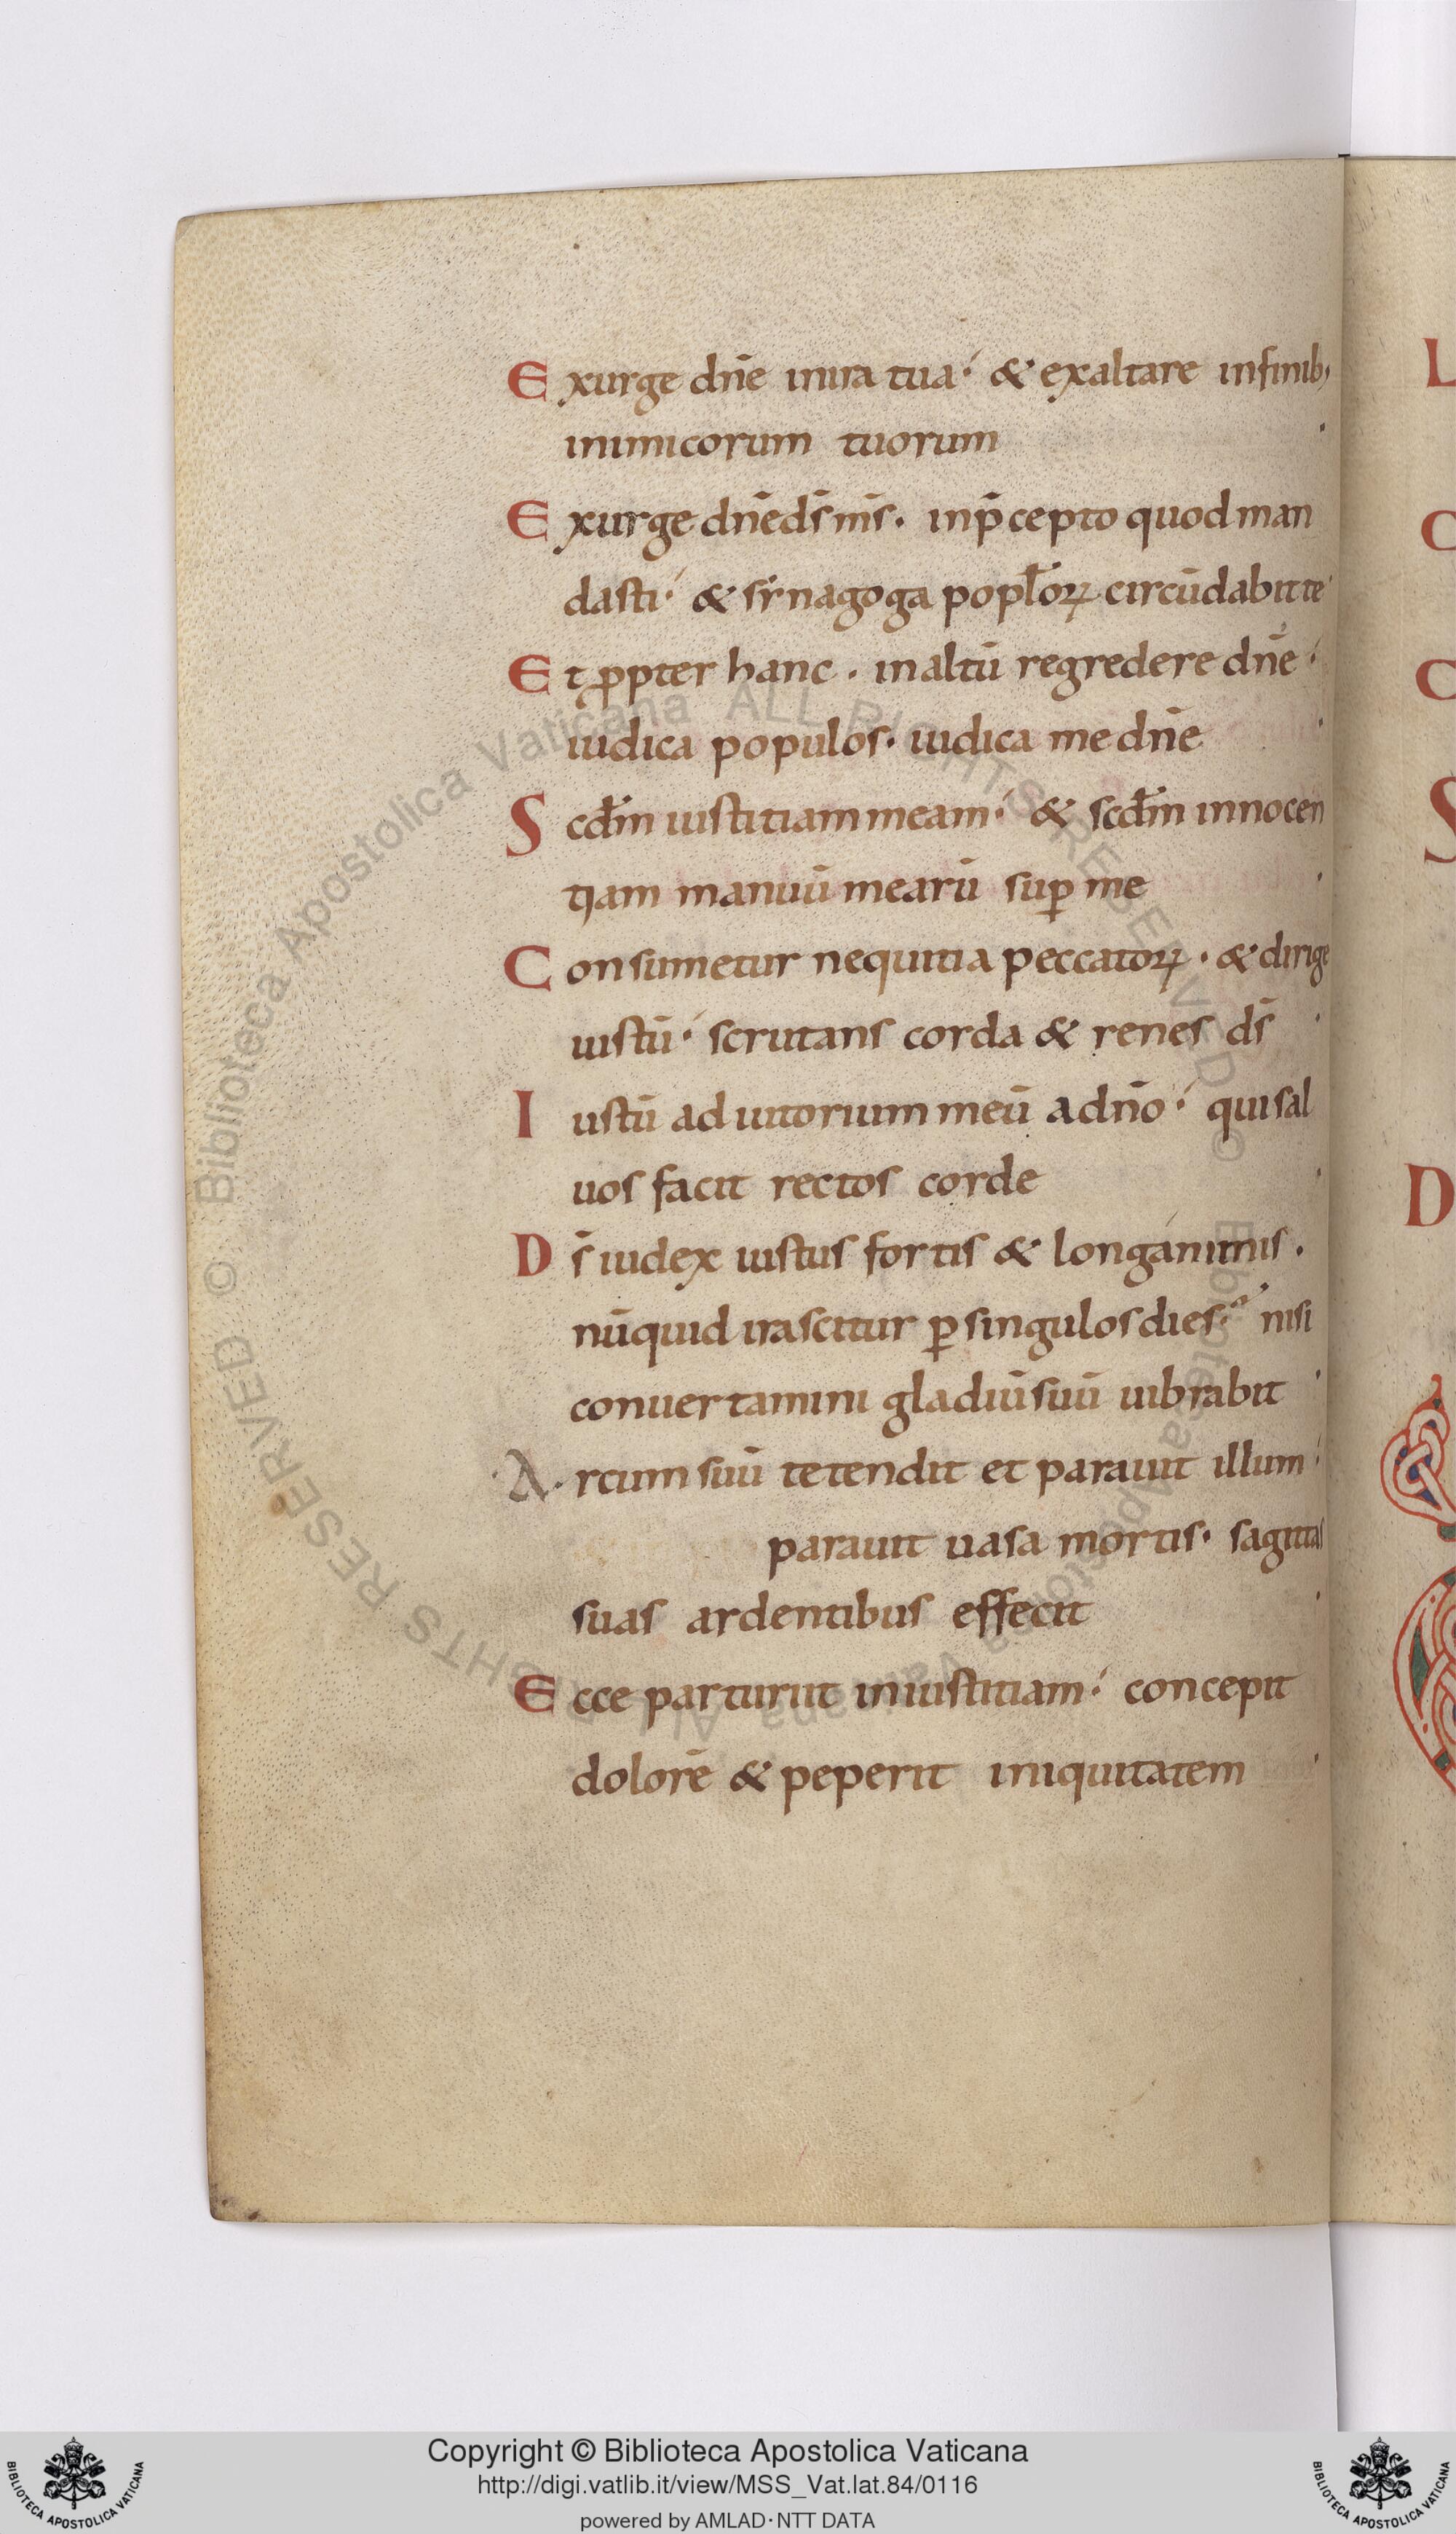 Exurge dn̄e inira tua·́ & exaltare infinib;
inimicorum tuorum
Exurge dn̄e ds̄ ms̄· inp̄cepto quod man
dasti·́ & sẏnagoga popl̄oꝝ circūdabit te
Et ꝓpter hanc · in altū regredere dn̄e·́
iudica populos· iudica me dn̄e
Scđm iustitiam meam·́ & scđm innocen
tiam manuū mearū sup̄ me
Consumetur nequitia peccatoꝝ · & dirige
iustū·́ scrutans corda & renes ds̄
Iustū adiutorium meū a dn̄o·́ qui sal
uos facit rectos corde
Ds̄ iudex iustus fortis & longanimis·
nūquid irascitur ꝑ singulos dies· nisi
conuertamini gladiū suū uibrabit
·A·rcum suū tetendit et parauit illum·́
parauit uasa mortis· sagittas
suas ardentibus effecit
Ecce parturiit iniustitiam·́ concepit
dolorē & peperit iniquitatem
L
C
C
S
D
© Biblioteca Apostolica Vaticana ALL RIGHTS RESERVED
© Biblioteca Apostolica Vaticana ALL RIGHTS RESERVED
Copyright © Biblioteca Apostolica Vaticana
http://digi.vatlib.it/view/MSS_Vat.lat.84/0116
powered by AMLAD·NTT DATA
BIBLIOTECA APOSTOLICA VATICANA
BIBLIOTECA APOSTOLICA VATICANA